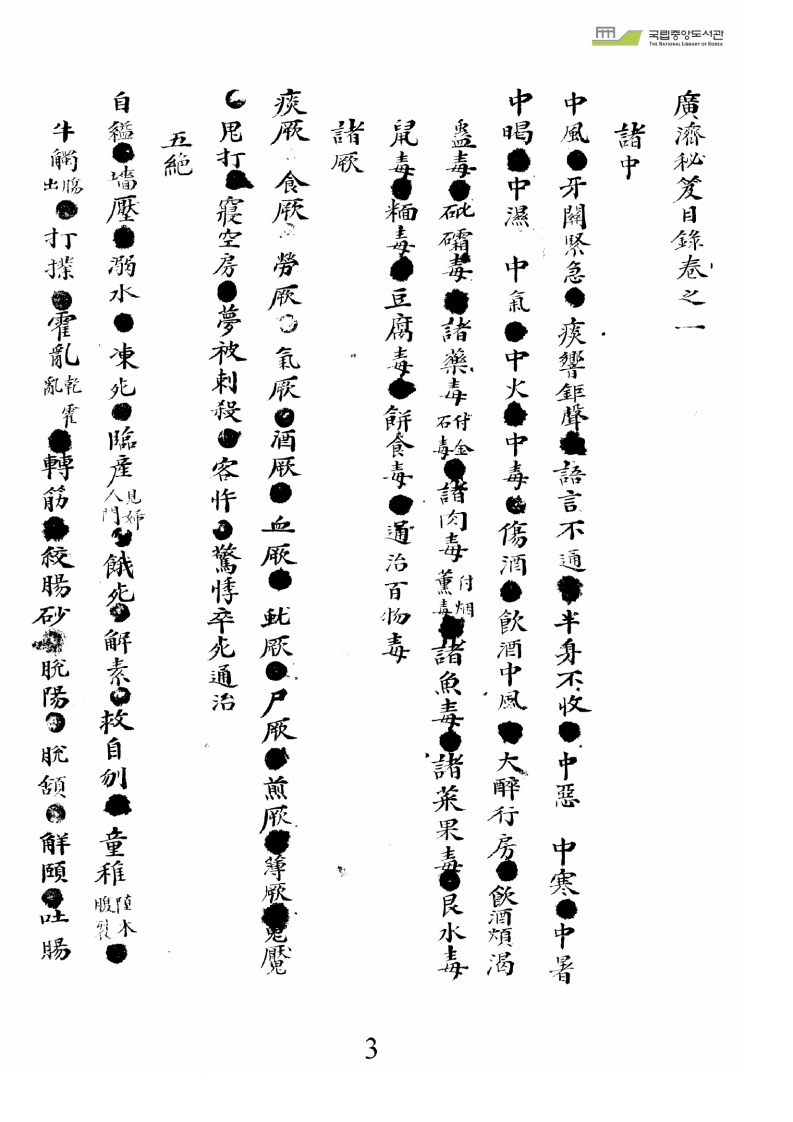 국립중앙도서관
THE NATIONAL LIBRARY OF KOREA
廣濟秘笈目錄卷之一
諸中
中風●牙關緊急●痰響鉅聲●語言不通●半身不收●中惡 中寒●中暑
中暍●中濕 中氣●中火●中毒●傷酒●飮酒中風●大醉行房●飮酒煩渴
蠱毒●砒礵毒●諸藥毒付金石毒●諸肉毒付烟薰毒●諸魚毒●諸菜果毒●艮水毒
鼠毒●糆毒●豆腐毒●餠食毒●通治百物毒
諸厥
痰厥 食厥 勞厥 氣厥●酒厥●血厥●蚘厥●尸厥●煎厥●薄厥●鬼魘
●鬼打●寢空房●夢被刺殺●客忤●驚悸卒死通治
五絶
自縊●墻壓●溺水●凍死●臨産見婦人門●餓死●解素●救自刎●童稚墮木腹裂●
牛觸腸出●打撲●霍亂乾霍亂●轉筋●絞腸砂●脫陽●脫頷●解頤●吐腸
3